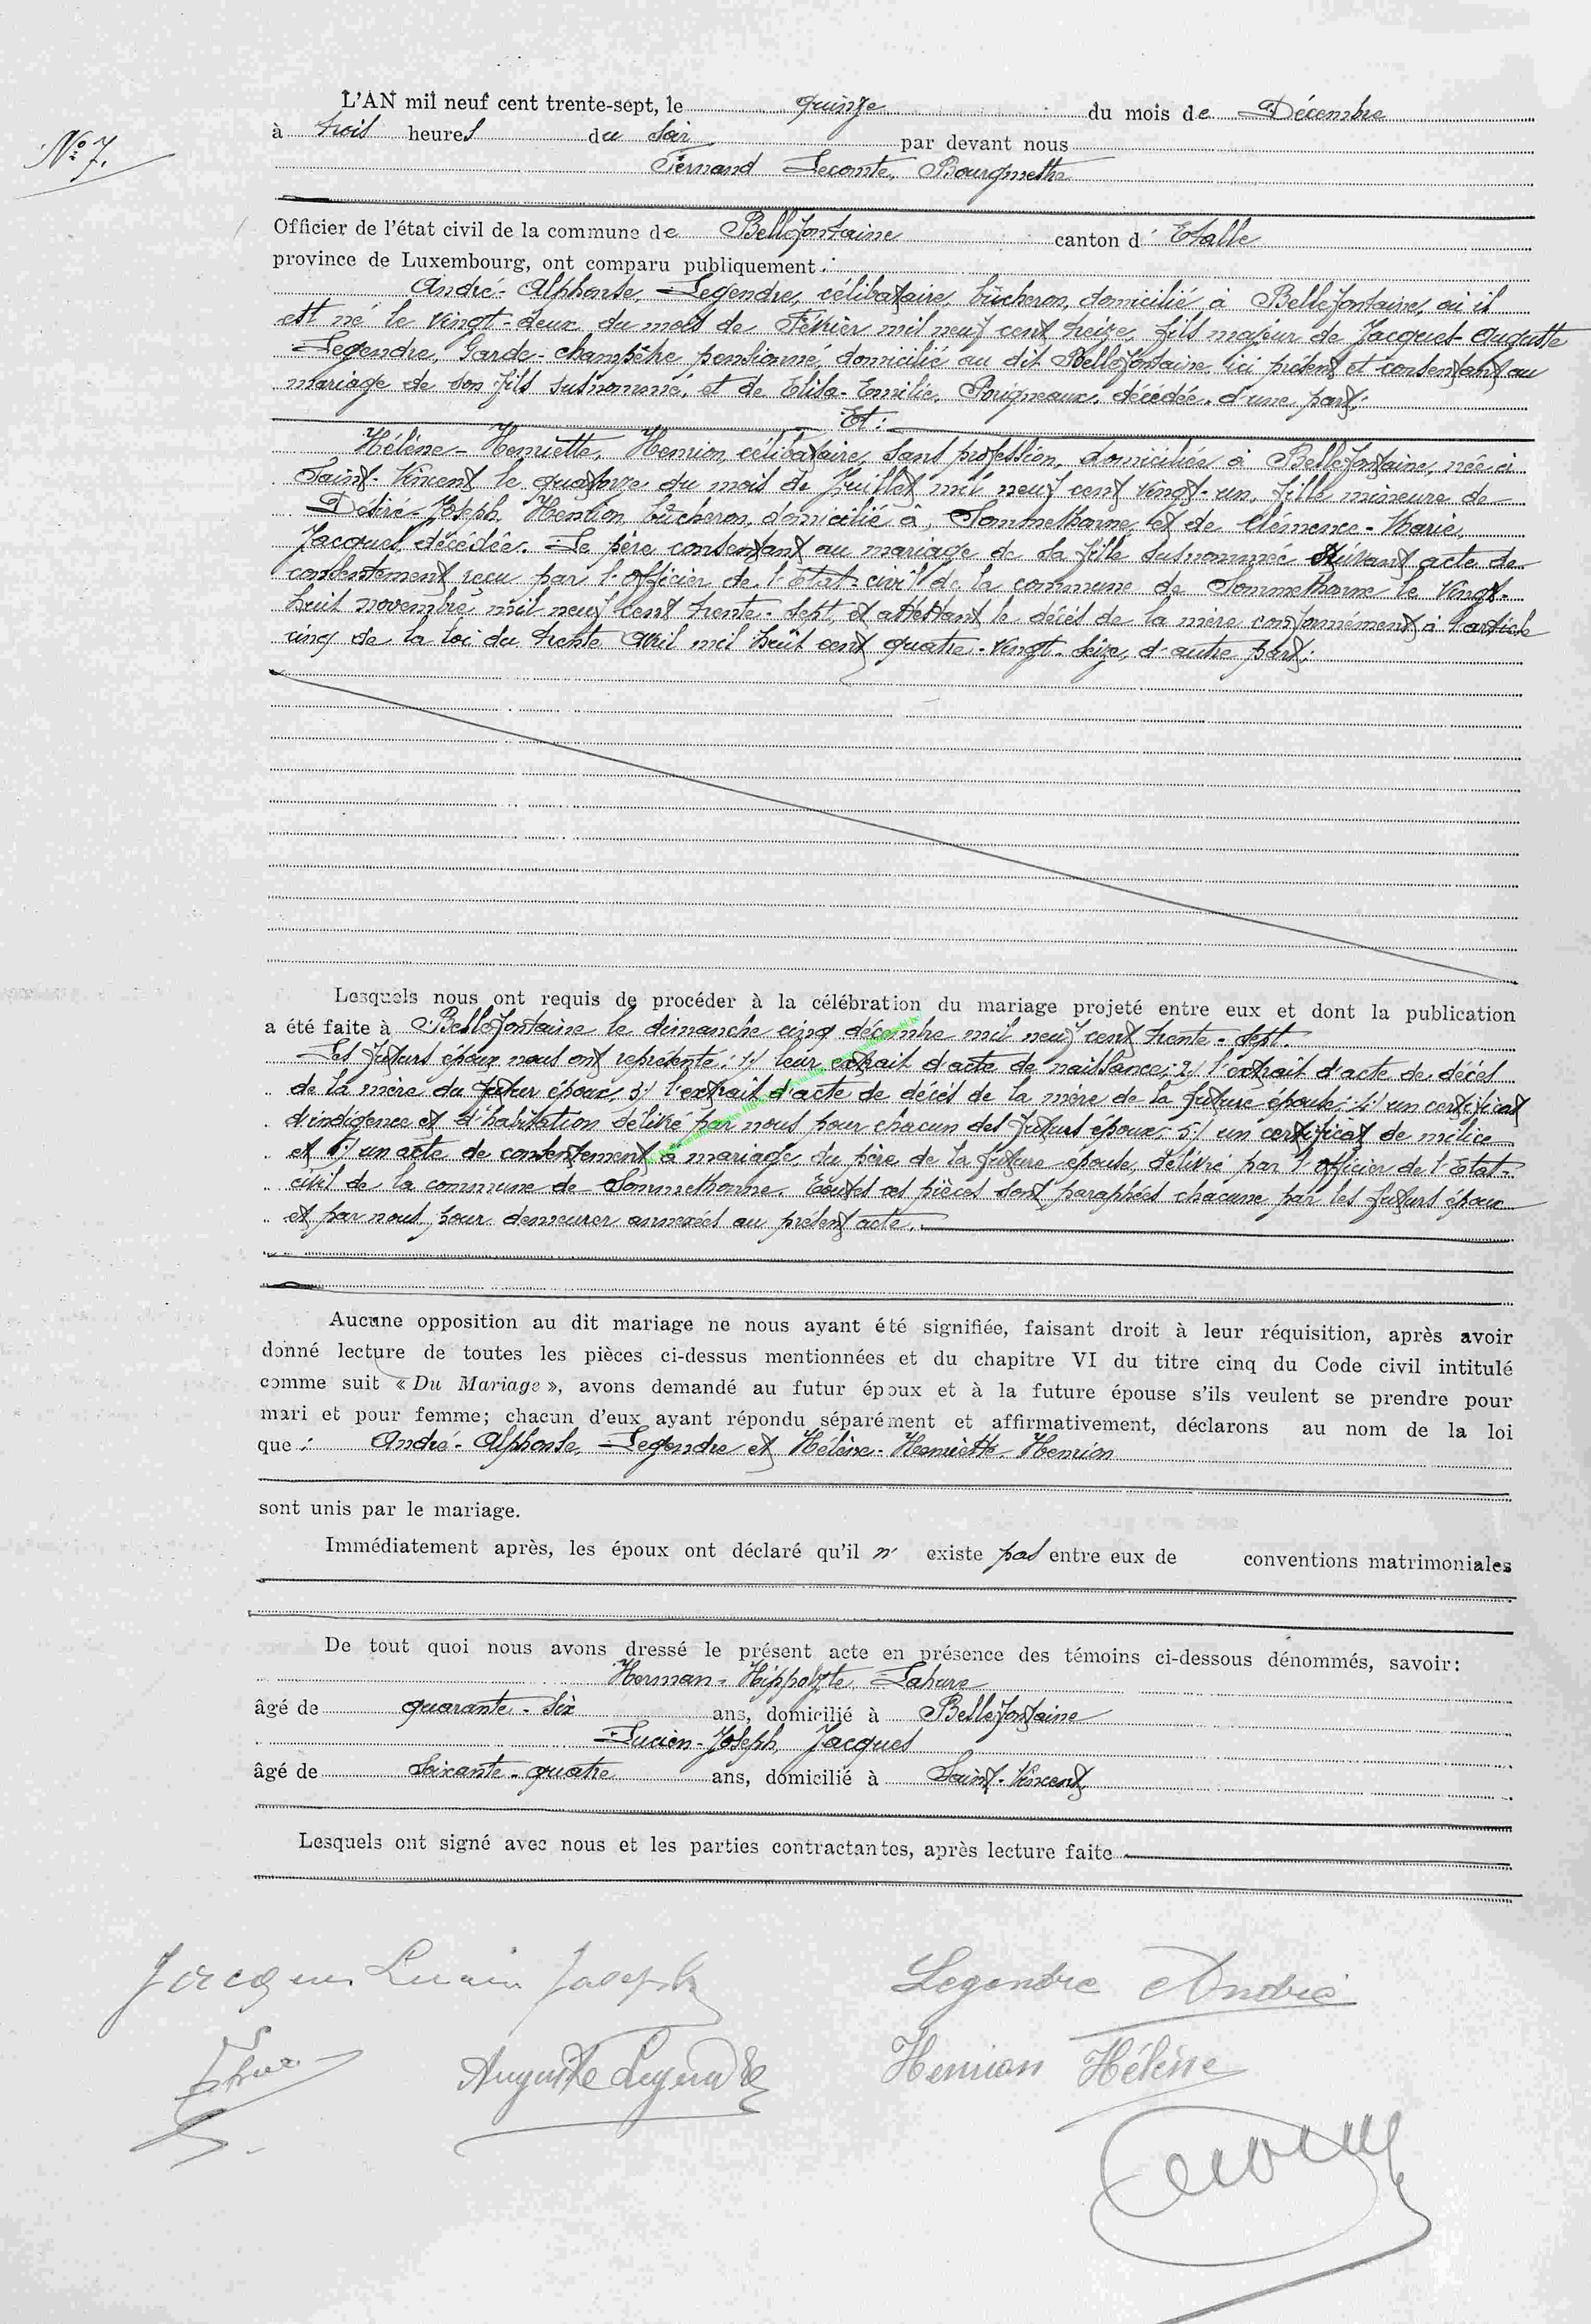 L'AN mil neuf cent trente-sept, le quinze du mois de Décembre
à trois heures du soir par devant nous
N° 7.
Fernand Leconte, Bourgmestre
Officier de l'état civil de la commune de Bellefontaine canton d' Etalle
province de Luxembourg, ont comparu publiquement :
André-Alphonse, Legendre, célibataire, bûcheron, domicilié à Bellefontaine, où il
est né le vingt-deux du mois de Février mil neuf cent treize, fils majeur de Jacques-Auguste
Legendre, Garde-champêtre pensionné, domicilié au dit Bellefontaine, ici présent et consentant au
mariage de son fils susnommé, et de Elisa-Emilie, Poigneaux, décédée, d'une part;
Et :
Hélène-Henriette, Henrion, célibataire, sans profession, domiciliée à Bellefontaine, née à
Saint-Vincent le quatorze du mois de Juillet mil neuf cent vingt-un, fille mineure de
Désiré-Joseph, Henrion, bûcheron, domicilié à Sommethonne, et de Clémence-Marie,
Jacques, décédée. Le père consentant au mariage de sa fille susnommée suivant acte de
consentement reçu par l'officier de l'Etat-civil de la commune de Sommethonne le vingt-
huit novembre mil neuf cent trente-sept, et attestant le décès de la mère conformément à l'article
cinq de la loi du trente avril mil huit cent quatre-vingt-seize, d'autre part;
Lesquels nous ont requis de procéder à la célébration du mariage projeté entre eux et dont la publication
a été faite à Bellefontaine le dimanche cinq décembre mil neuf cent trente-sept.
Les futurs époux nous ont représenté : 1/ leur extrait d'acte de naissance; 2/ l'extrait d'acte de décès
de la mère du futur époux, 3/ l'extrait d'acte de décès de la mère de la future épouse; 4/ un certificat
d'indigence et d'habitation délivré par nous pour chacun des futurs époux; 5/ un certificat de milice
et 6/ un acte de consentement à mariage, du père de la future épouse, délivré par l'officier de l'Etat-
civil de la commune de Sommethonne. Toutes ces pièces sont paraphées chacune par les futurs époux
et par nous pour demeurer annexées au présent acte.
Aucune opposition au dit mariage ne nous ayant été signifiée, faisant droit à leur réquisition, après avoir
donné lecture de toutes les pièces ci-dessus mentionnées et du chapitre VI du titre cinq du Code civil intitulé
comme suit « Du Mariage », avons demandé au futur époux et à la future épouse s'ils veulent se prendre pour
mari et pour femme; chacun d'eux ayant répondu séparément et affirmativement, déclarons au nom de la loi
que : André-Alphonse, Legendre et Hélène-Henriette, Henrion
sont unis par le mariage.
Immédiatement après, les époux ont déclaré qu'il n' existe pas entre eux de conventions matrimoniales
De tout quoi nous avons dressé le présent acte en présence des témoins ci-dessous dénommés, savoir:
Herman-Hippolyte, Lahure
âgé de quarante-six ans, domicilié à Bellefontaine
Lucien-Joseph, Jacques
âgé de soixante-quatre ans, domicilié à Saint-Vincent
Lesquels ont signé avec nous et les parties contractantes, après lecture faite
Jacques Lucien Joseph
Legendre André
Auguste Legendre
Henrion Hélène